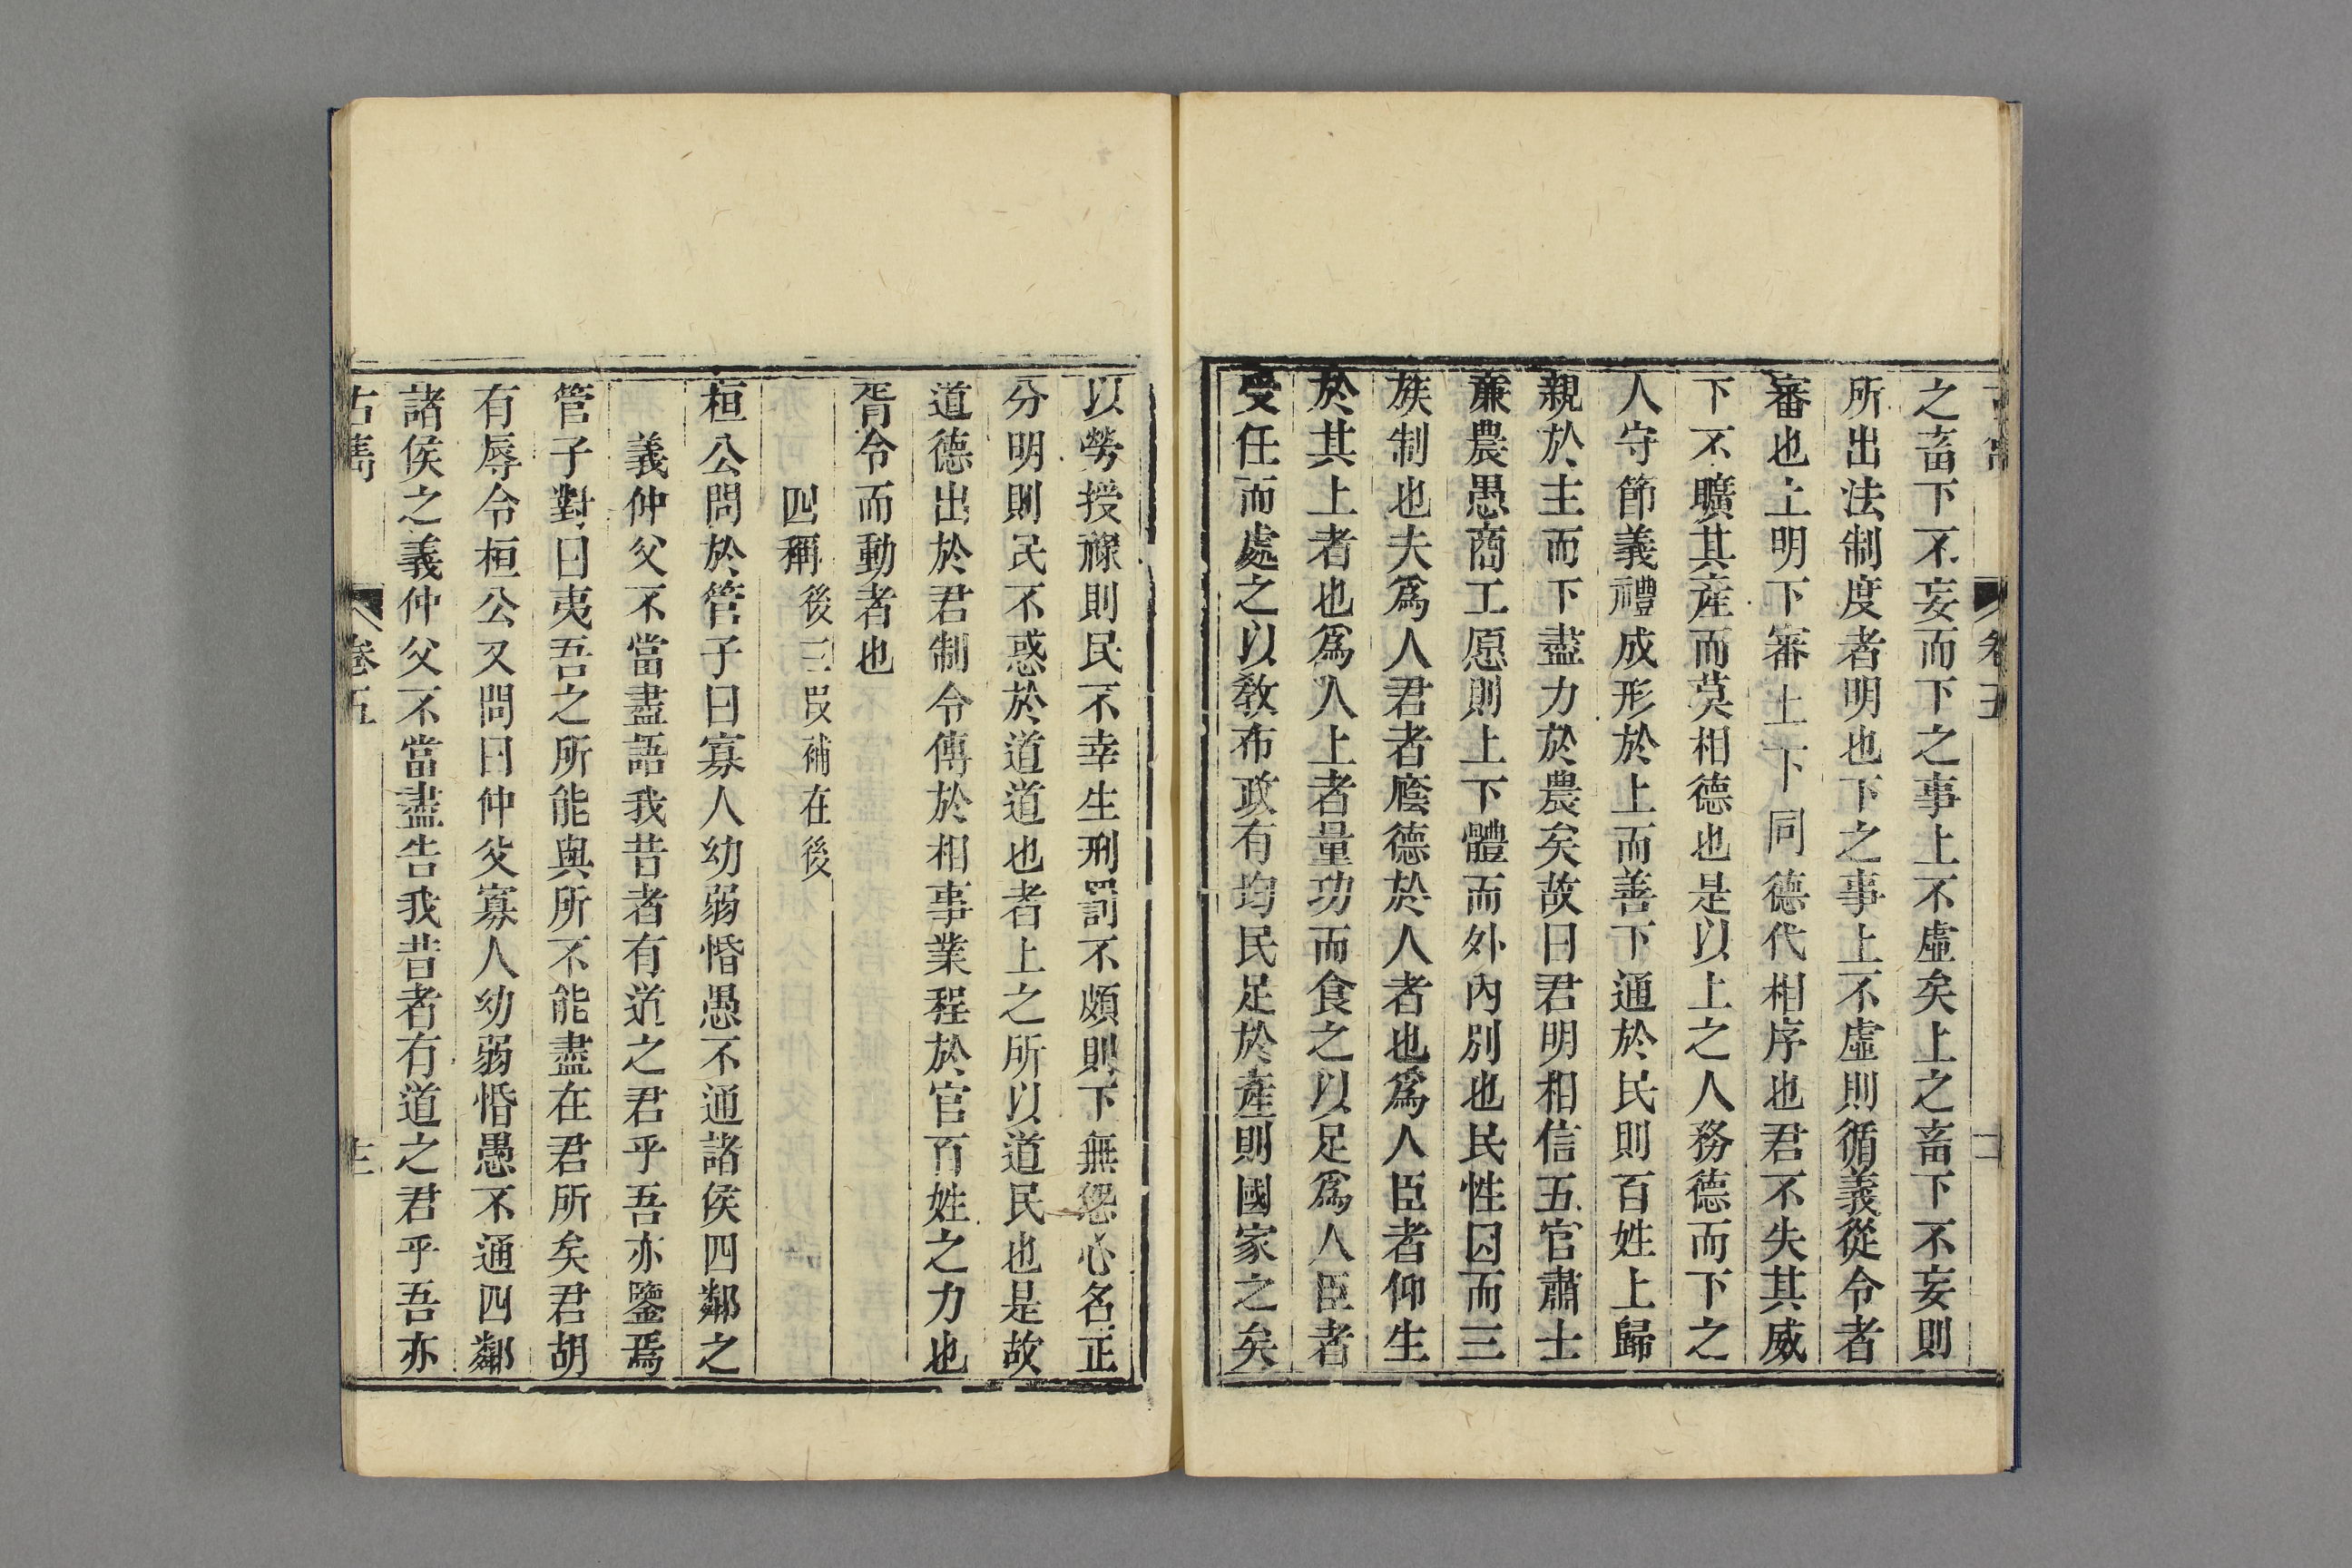 之畜下不妄而下之事上不虛矣上之畜下不妄則
所出法制度者明也下之事上不虛則循義從令者
審也上明下審上下同德代相序也君不失其威
下不曠其產而莫相德也是以上之人務德而下之
人守節義禮成形於上而善下通於民則百姓上歸
親於主而下盡力於農矣故曰君明相信五官肅士
廉農愚商工愿則上下體而外內別也民性因而三
族制也夫爲人君者廕德於人者也爲人臣者仰生
於其上者也爲人上者量功而食之以足爲人臣者
受任而處之以教布政有均民足於產則國家之矣
以勞授祿則民不幸生刑罰不頗則下無怨心名正
分明則民不惑於道道也者上之所以道民也是故
道德出於君制令傳於相事業程於官百姓之力也
胥令而動者也
四稱後三段補在後
桓公問於管子曰寡人幼弱惛愚不通諸侯四鄰之
義仲父不當盡語我昔者有道之君乎吾亦鑒焉
管子對曰夷吾之所能與所不能盡在君所矣君胡
有辱令桓公又問曰仲父寡人幼弱惛愚不通四鄰
諸侯之義仲父不當盡告我昔者有道之君乎吾亦
卷五